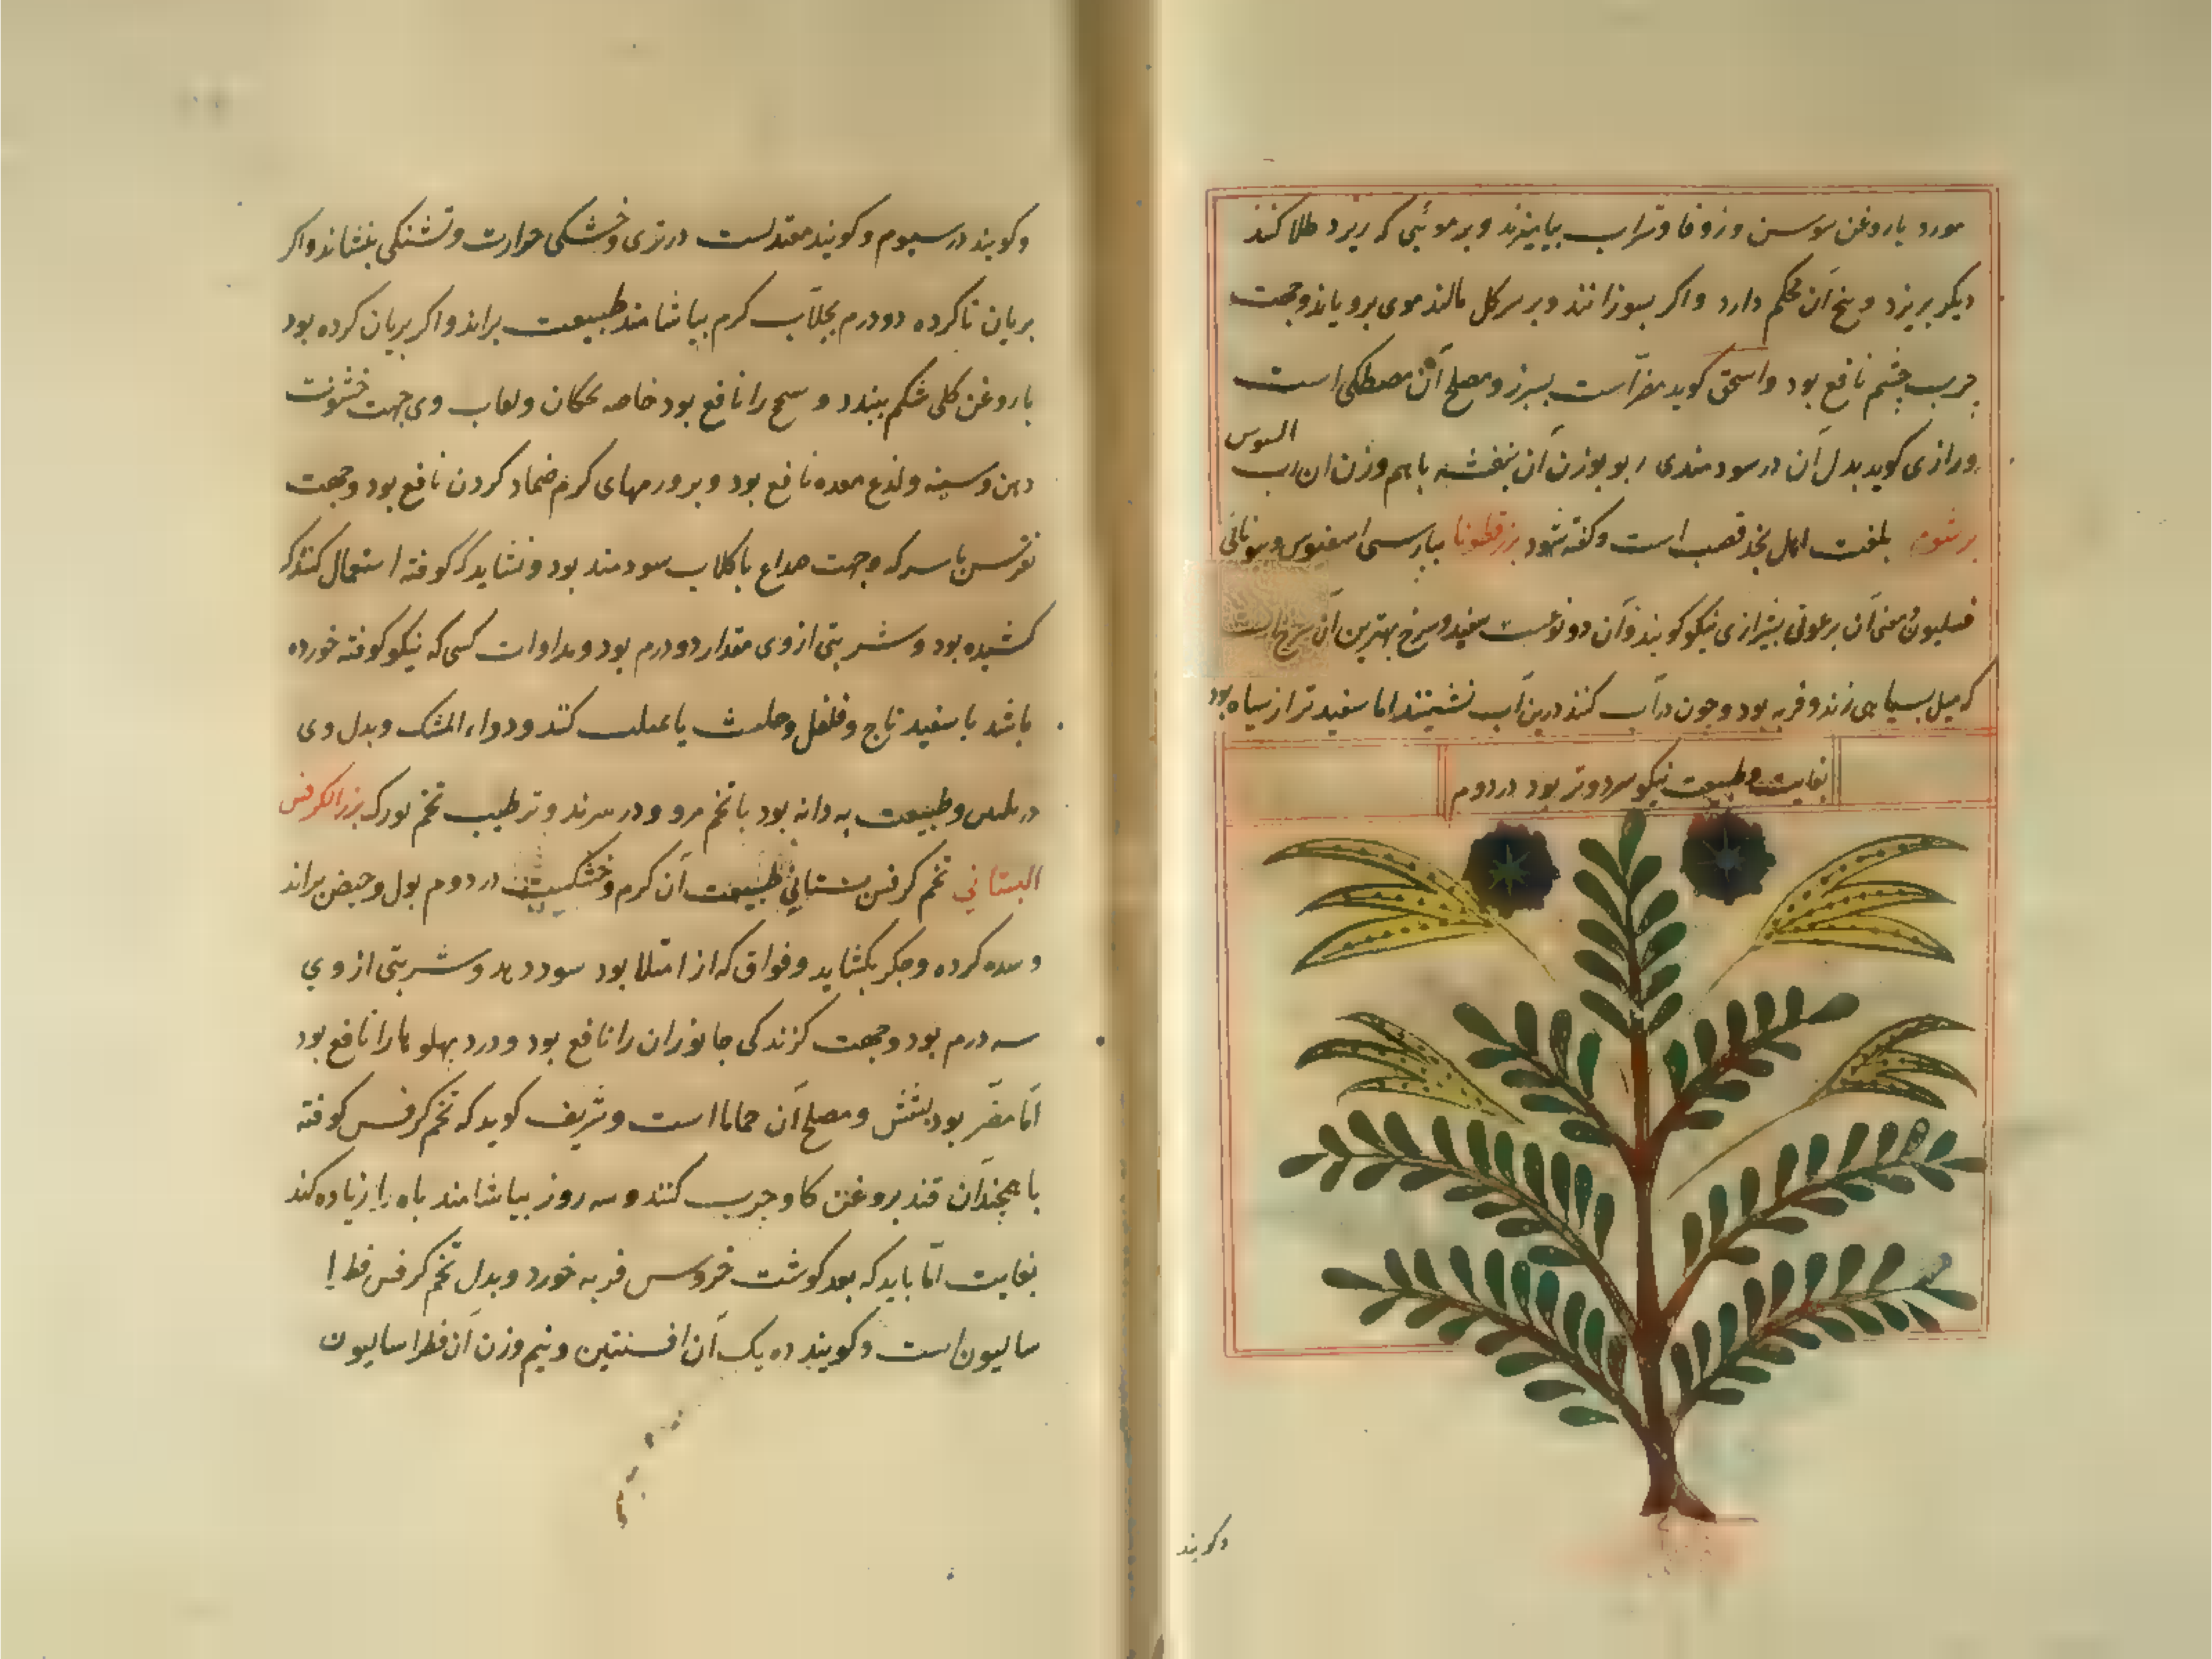 مورد با روغن سوسن و زوفا و شراب بیامیزند و بر موئی که ریزد طلا کنند
دیکر بریزد و بیخ آن محکم دارد و اکر بسوزانند و بر سر کل مالند موی برویاند و جهت
جرب چشم نافع بود و اسحق کوید مضر است بسپرز و مصلح آن مصطکی است
و رازی کوید بدل آن در سودمندی ربو بوزن آن بنفشه با هم وزن ان رب السوس
برشوم بلغت اهل نجد قصب است و کفته شود بزرقطونا بپارسی اسفیوس و یونانی
فسلیون معنی آن برغوثی بشیرازی نیکو کویند و آن دو نوعست سفید و سرخ بهترین آن سرخ است
که میل بسیاهی زند و فربه بود و چون در آب کنند در بن آب نشینند اما سفید تر از سیاه بود
بغایت و طبیعت نیکو سرد و تر بود در دوم
وکویند
وکویند در سیوم و کویند معتدلست در تری و خشکی حرارت و تشنکی بنشاند و اکر
بریان ناکرده دو درم بجلاب کرم بیاشامند طبیعت براند و اکر بریان کرده بود
با روغن کل شکم ببندد و سحج را نافع بود خاصه بچکان و لعاب وی جهت خشونت
دهن و سینه و لذع معده نافع بود و بر ورمهای کرم ضماد کردن نافع بود و جهت
نقرس با سرکه و جهت صداع با کلاب سودمند بود و نشاید که کوفته استعمال کنند که
کشیده بود و شربتی از وی مقدار دو درم بود و مداوات کسی که نیکو کوفته خورده
باشد با سفید تاج و فلفل و حلتیت یا عسل کنند و دواء المشک و بدل وی
در طبیعت به دانه بود با تخم مرو و در سرند و ترطیب تخم تورک بزر الکرفس
البستانی تخم کرفس بستانی طبیعت آن کرم و خشکست در دوم بول و حیض براند
و سده کرده و جکر بکشاید و فواق که از امتلا بود سود دهد و شربتی از وی
سه درم بود و جهت کزندکی جانوران را نافع بود و درد پهلو ها را نافع بود
اما مضر بود بشش و مصلح آن حماما است و شریف کوید که تخم کرفس کوفته
با همچندان قند بروغن کاو چرب کنند و سه روز بیاشامند باه را زیاده کند
بغایت اما باید که بعد کوشت خروس فربه خورد و بدل تخم کرفس فطرا
سالیون است و کویند ده یک آن افسنتین و نیم وزن آن فطراسالیون